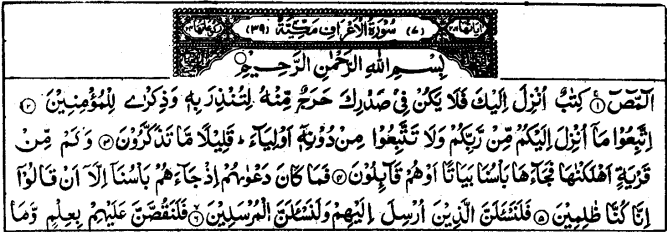 اٰيَاتُهَا (٧) سُوْرَةُ الْاَعْرَافِ مَكِّيَّةٌ (٣٩)
بِسْمِ اللّٰهِ الرَّحْمٰنِ الرَّحِيْمِ
الٓمّٓصٓ ١ كِتٰبٌ اُنْزِلَ اِلَيْكَ فَلَا يَكُنْ فِيْ صَدْرِكَ حَرَجٌ مِّنْهُ لِتُنْذِرَ بِهٖ وَذِكْرٰے لِلْمُؤْمِنِيْنَ ٢
اِتَّبِعُوْا مَآ اُنْزِلَ اِلَيْكُمْ مِّنْ رَّبِّكُمْ وَلَا تَتَّبِعُوْا مِنْ دُوْنِهٖٓ اَوْلِيَآءَ ؕ قَلِيْلًا مَّا تَذَكَّرُوْنَ ٣ وَكَمْ مِّنْ
قَرْيَةٍ اَهْلَكْنٰهَا فَجَآءَهَا بَاْسُنَا بَيَاتًا اَوْ هُمْ قَآئِلُوْنَ ٤ فَمَا كَانَ دَعْوٰىهُمْ اِذْ جَآءَهُمْ بَاْسُنَآ اِلَّآ اَنْ قَالُوْٓا
اِنَّا كُنَّا ظٰلِمِيْنَ ٥ فَلَنَسْئَلَنَّ الَّذِيْنَ اُرْسِلَ اِلَيْهِمْ وَلَنَسْئَلَنَّ الْمُرْسَلِيْنَ ٦ فَلَنَقُصَّنَّ عَلَيْهِمْ بِعِلْمٍ وَّمَا